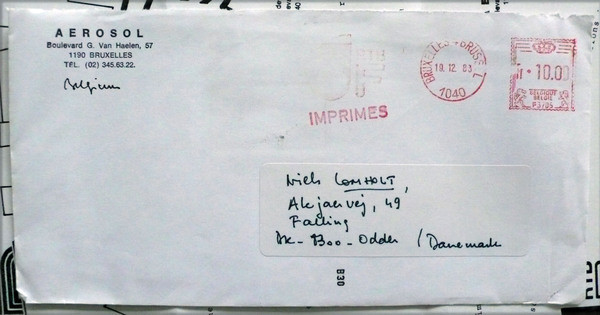 AEROSOL
Boulevard G. Van Haelen, 57
1190 BRUXELLES
TEL. (02) 345.63.22.
Belgium
BRUXELLES - BRUSSEL
19.12.83
1040
10.00
BELGIQUE
BELGIE
IMPRIMES
Niels LOMHOLT,
Akjaervej, 49
Falling
DK - 8300 - Odder / Danemark
B30